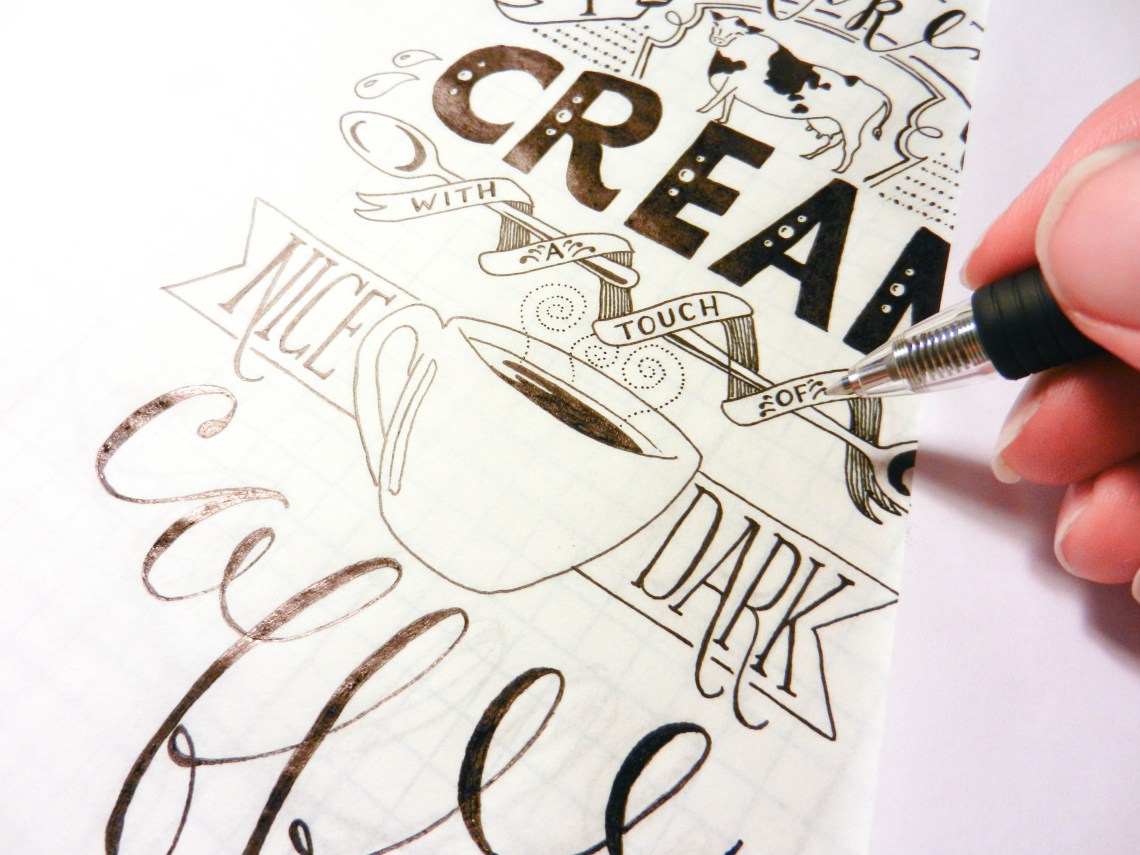 CREAM
WITH A TOUCH OF
NICE DARK
coffee